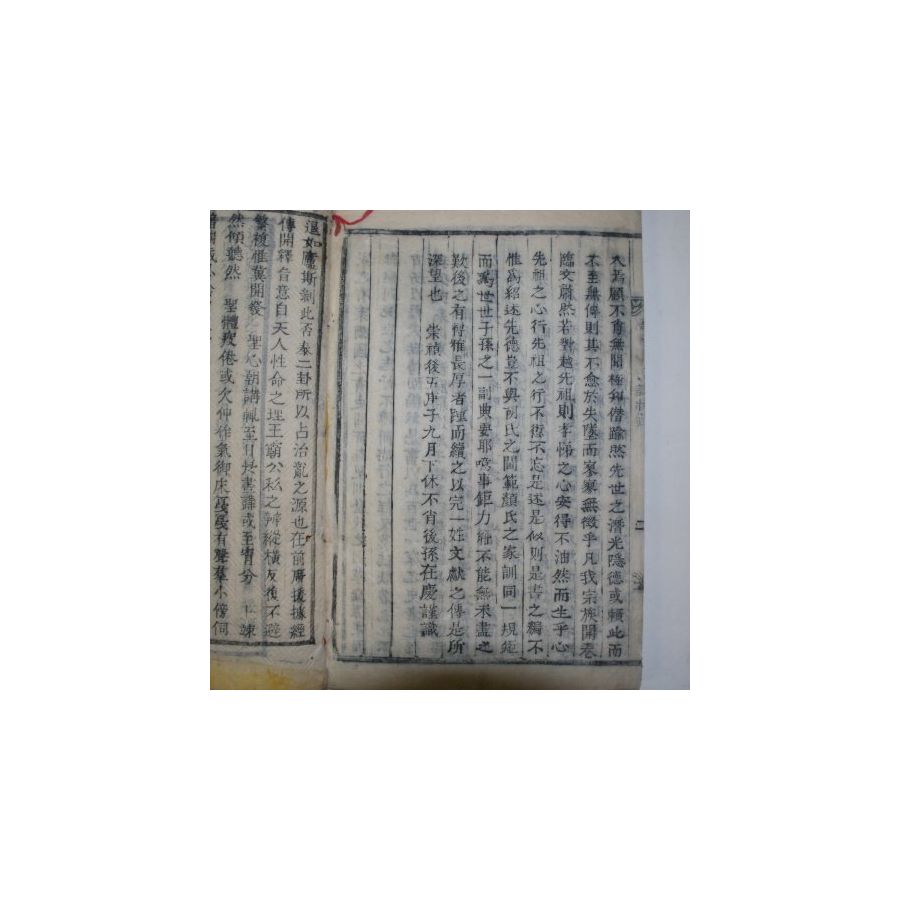 大焉顧不肖無聞極知僭踰然先世之潛光隱德或賴此而
不至無傳則其不愈於失墜而寥寥無徵乎凡我宗族開卷
臨文肅然若對越先祖則孝悌之心安得不油然而生乎心
先祖之心行先祖之行不衍不忘是述是似則是書之編不
惟為紹述先德豈不與 氏之閫範顔氏之家訓同一規範
而為世世子孫之一訓典耶噫事鉅力 不能無未盡之
歎後之有得雅長厚者踵而續之以完一姓文獻之傳是所
深望也 崇禎後五庚子九月下休不肖後孫在慶謹識
退如 斯剝此否泰二卦所以占治亂之源也在前 援據經
傳開釋音意自天人性命之理王霸公私之辨縱橫反復不避
繁複惟冀開發 聖心朝講 至日 書講或至宵分 上竦
然傾聽然 聖體疲倦或欠伸作氣御床 有聲羣小傍伺